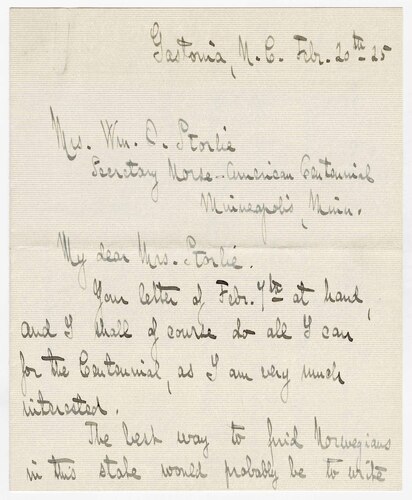 Gastonia, N.C. Febr. 20th-25
Mrs. Wm. O. Storlie
Secretary Norse-American Centennial
Minneapolis, Minn.
My dear Mrs. Storlie.
Your letter of Febr. 7th at hand,
and I shall of course do all I can
for the Centennial, as I am very much
interested.
The best way to find Norwegians
in this state would probably be to write